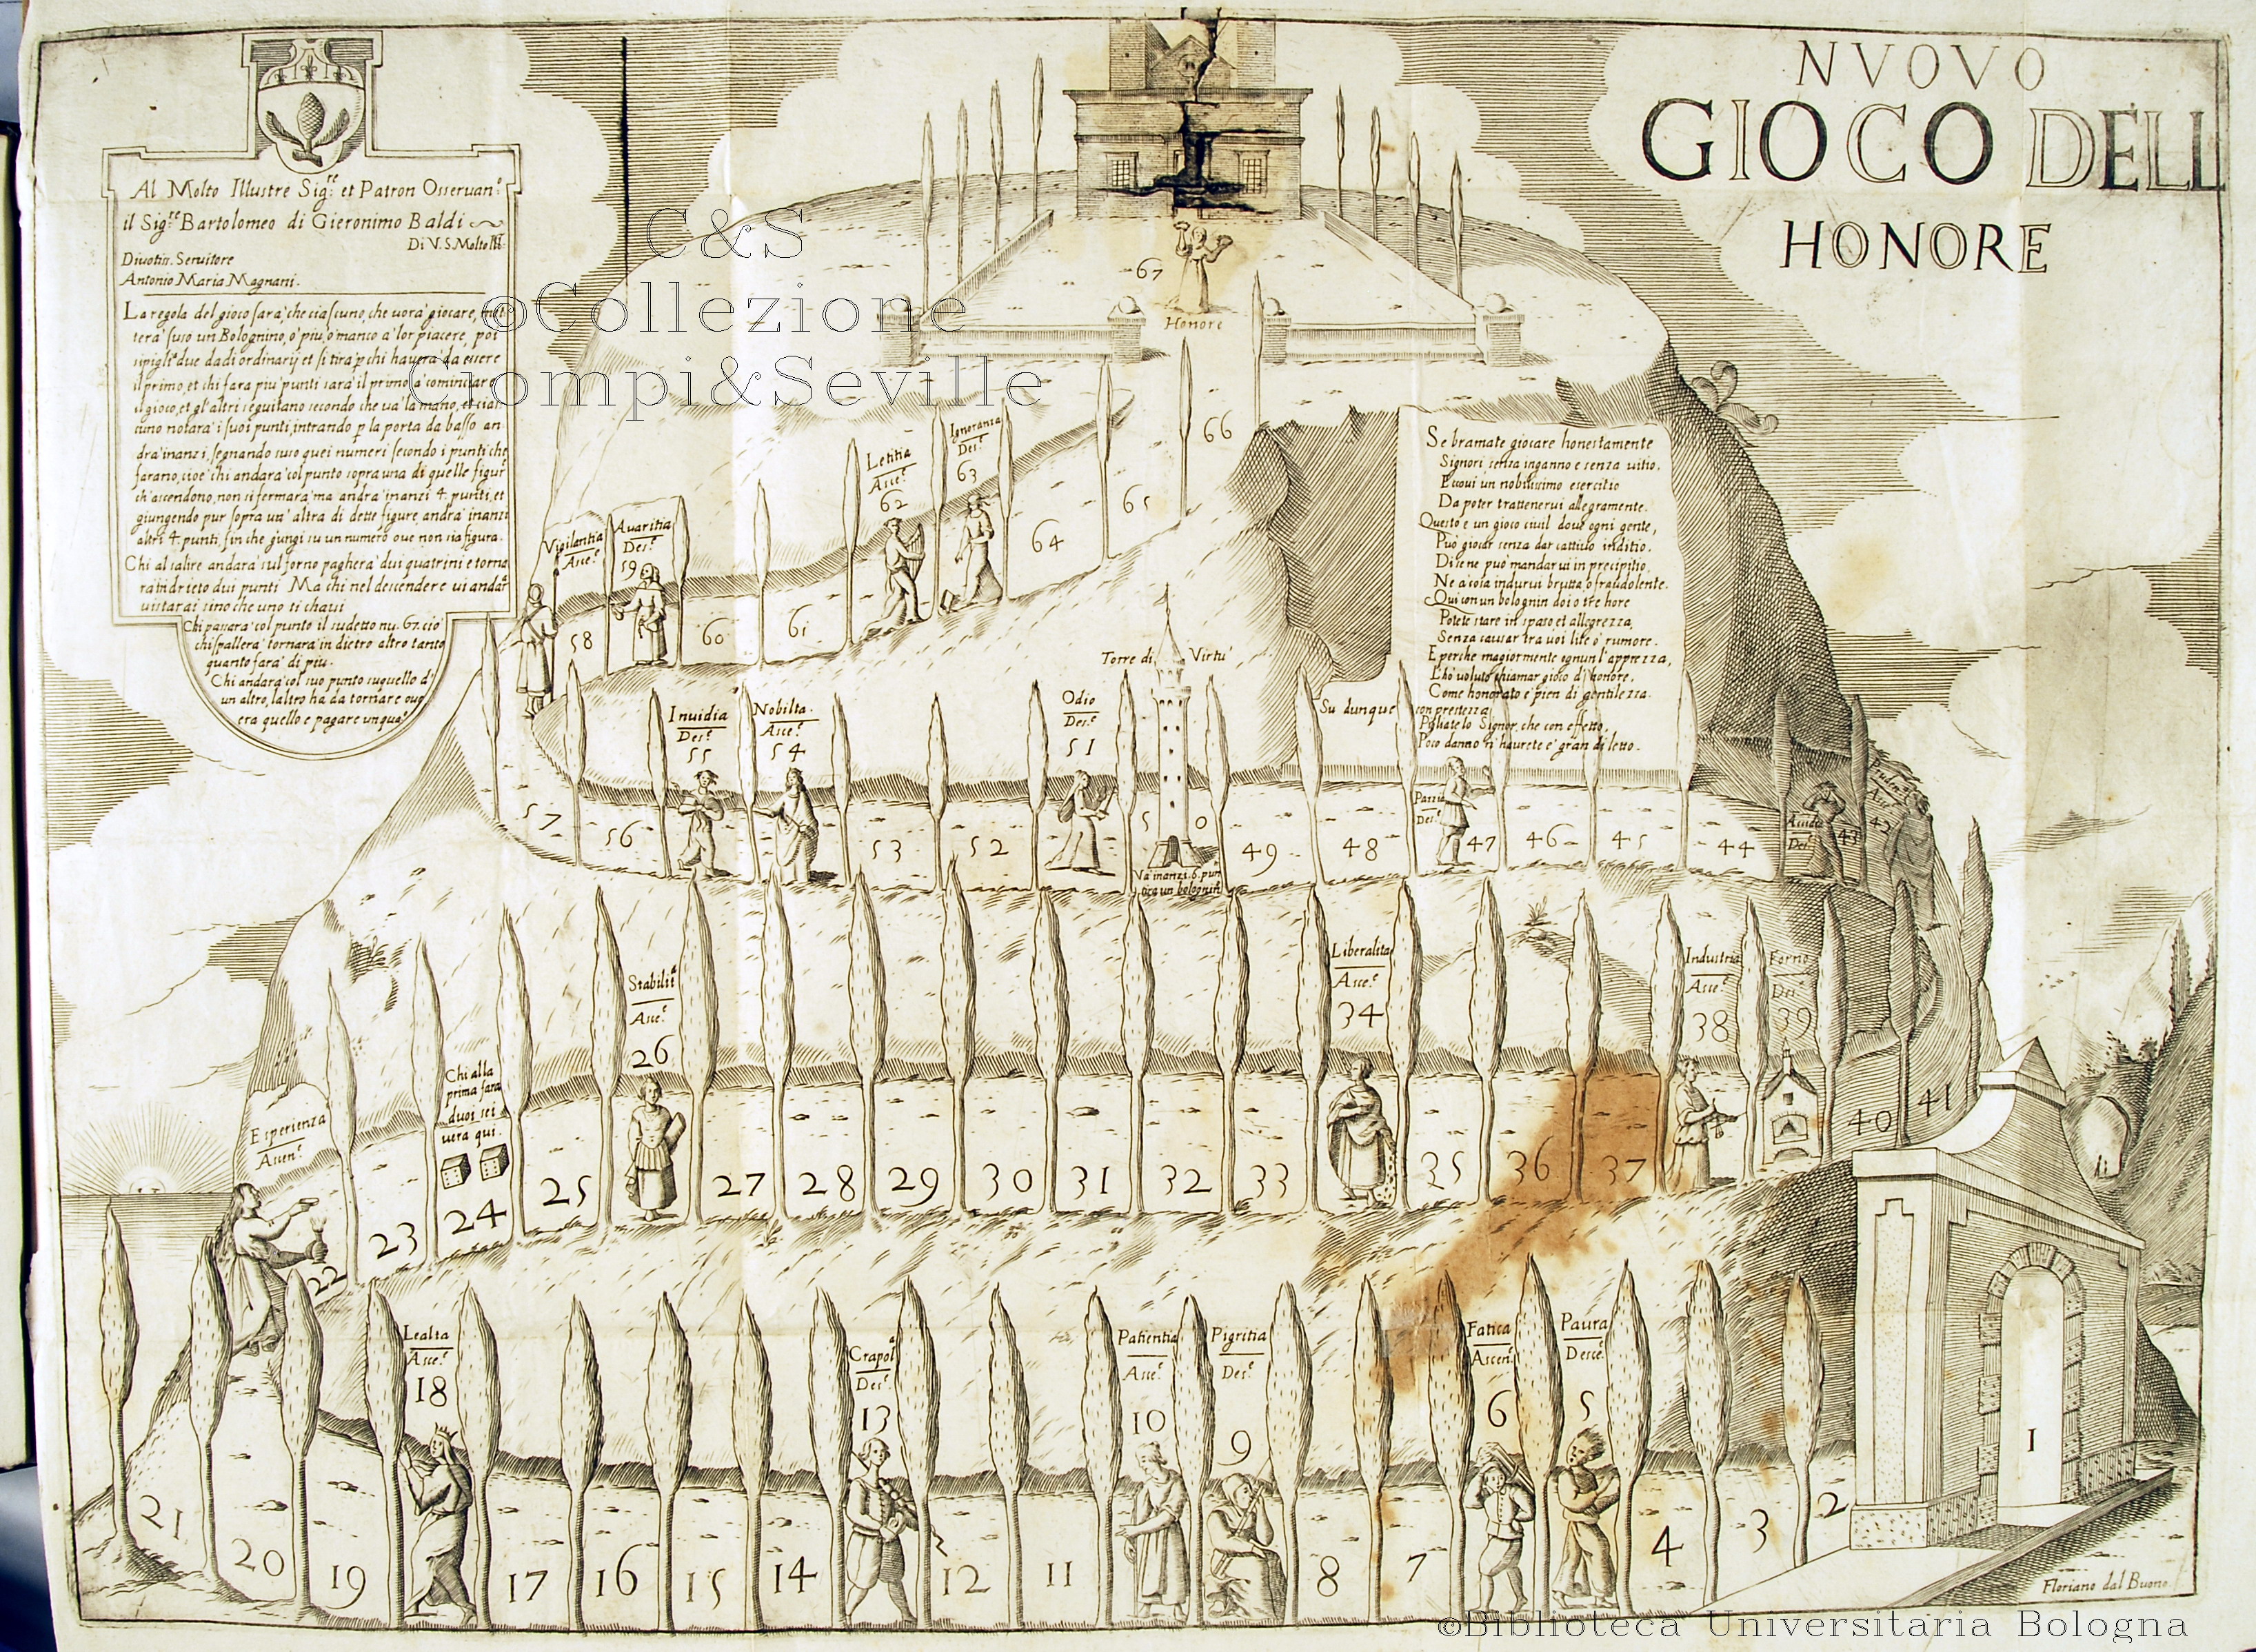 NVOVO
GIOCO DELL
HONORE
Al Molto Illustre Sig.re et Patron Osseruan.
il Sig.re Bartolomeo di Gieronimo Baldi
Di V. S. Molto Ill.
Diuotiss. Seruitore
Antonio Maria Magnani.
La regola del gioco sara, che ciascuno, che uorà giocare, met
terà suso un Bolognino, ò piu, ò manco à lor piacere, poi
si pigli due dadi ordinarij et si tira p chi hauerà da essere
il primo, et chi fara piu punti sarà il primo, à cominciare
il gioco, et gl'altri seguitano secondo che uà la mano, et cias
cuno notarà i suoi punti, intrando p la porta da basso an
drà inanzi, segnando suso quei numeri secondo i punti che
farano, cioe chi andarà col punto sopra una di quelle figure
ch'ascendono, non si fermarà ma andrà inanzi 4. punti, et
giungendo pur sopra un'altra di dette figure, andrà inanzi
altri 4. punti, fin che giungi su un numero oue non sia figura.
Chi al salire andarà sul forno pagherà dui quatrini e torna
rà indrieto dui punti Ma chi nel descendere ui andar
ui starai sino che uno ti chaui
Chi passarà col punto il sudetto nu. 67. cio
chi spallerà tornarà in dietro altro tanto
quanto farà di piu.
Chi andarà col suo punto su quello d'
un altro, l'altro ha da tornare oue
era quello e pagare un qua
Se bramate giocare honestamente
Signori senza inganno e senza uitio,
Eccoui un nobilissimo esercitio
Da poter trattenerui allegramente.
Questo è un gioco ciuil doue ogni gente,
Può giocar senza dar cattiuo inditio.
Di se ne può mandarui in precipitio,
Ne à cosa indurui brutta o fraudolente.
Qui con un bolognin doi o tre hore
Potete stare in spaso et allegrezza,
Senza causar tra uoi lite ò rumore.
E perche magiormente ognun l'apprezza,
L'hò uoluto chiamar gioco d'honore,
Come honorato e pien di gentilezza.
Su dunque con prestezza
Pigliatelo Signor, che con effetto,
Poco danno n'haurete e gran diletto.
67
Honore
66
65
64
Ignoranza
Des.e
63
Letitia
Asce.e
62
61
60
Auaritia
Des.e
59
58
Vigilantia
Asce.e
57
56
Inuidia
Des.e
55
Nobilta.
Asce.e
54
53
52
Odio
Des.e
51
Torre di Virtu
50
Và inanzi 6. pun
tira un bolognin
49
48
Pazzia
Des.e
47
46
45
44
Des.e
43
Pruden
Asce
42
41
40
Forno
Des.e
39
Industria
Asce.e
38
37
36
35
Liberalita
Asce.e
34
33
32
31
30
29
28
27
Stabilit
Asce.e
26
25
Chi alla
prima farà
duoi sei
uerà qui.
24
23
Esperienza
Ascen.e
22
21
20
19
Lealta
Asce.e
18
17
16
15
14
Crapol
Des.e
13
12
11
Patientia
Asce.e
10
Pigritia
Des.e
9
8
7
Fatica
Ascen.e
6
Paura
Desce.e
5
4
3
2
1
Floriano dal Buono
C&S
©Collezione
Ciompi&Seville
©Biblioteca Universitaria Bologna